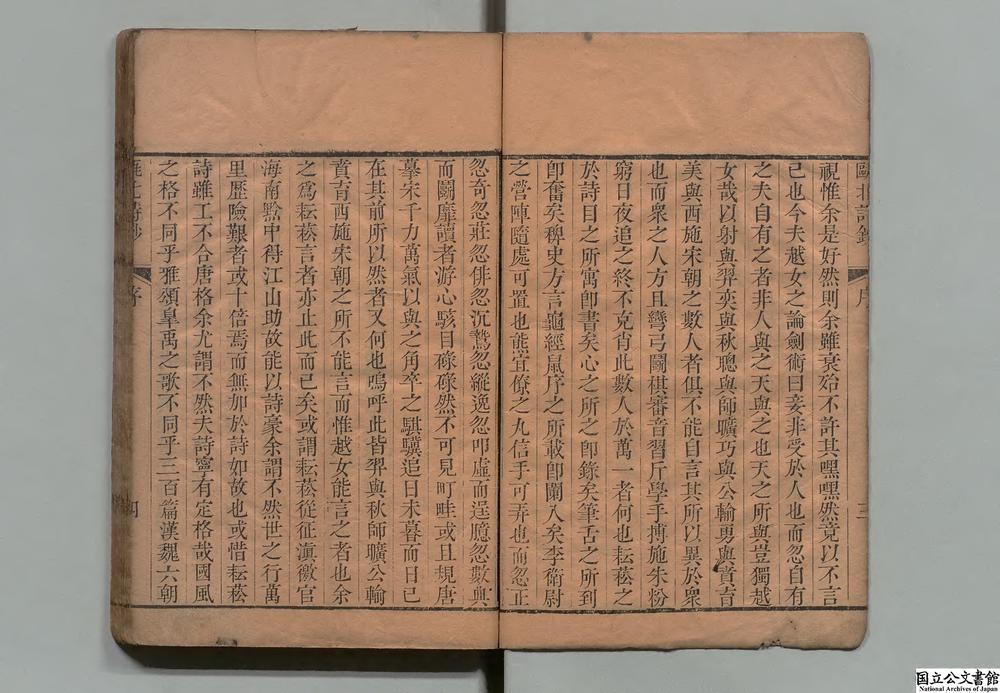 甌北詩鈔
序
三
視惟余是好然則余雖衰殆不許其嘿嘿然竟以不言
己也今夫越女之論劍術曰妾非受於人也而忽自有
之夫自有之者非人與之天與之也天之所與豈獨越
女哉以射與羿奕與秋聰與師曠巧與公輸勇與賁育
美與西施宋朝之數人者俱不能自言其所以異於衆
也而衆之人方且彎弓鬭碁審音習斤學手搏施朱粉
窮日夜追之終不克肖此數人於萬一者何也耘菘之
於詩目之所寓卽書矣心之所之卽錄矣筆舌之所到
卽奮矣稗史方言龜經鼠序之所載卽闌入矣李衛尉
之營陣隨處可置也熊宜僚之丸信手可弄也而忽正
忽奇忽莊忽俳忽沉鷙忽縱逸忽叩虛而逞臆忽數典
而鬭靡讀者游心駭目碌碌然不可見町畦或且規唐
摹宋千力萬氣以與之角卒之騏驥追日未暮而日已
在其前所以然者又何也嗚呼此皆羿與秋師曠公輸
賁育西施宋朝之所不能言而惟越女能言之者也余
之爲耘菘言者亦止此而已矣或謂耘菘從征滇徼官
海南黔中得江山助故能以詩豪余謂不然世之行萬
里歷險艱者或十倍焉而無加於詩如故也或惜耘菘
詩雖工不合唐格余尤謂不然夫詩寧有定格哉國風
之格不同乎雅頌臯禹之歌不同乎三百篇漢魏六朝
甌北詩鈔
序
四
国立公文書館
National Archives of Japan